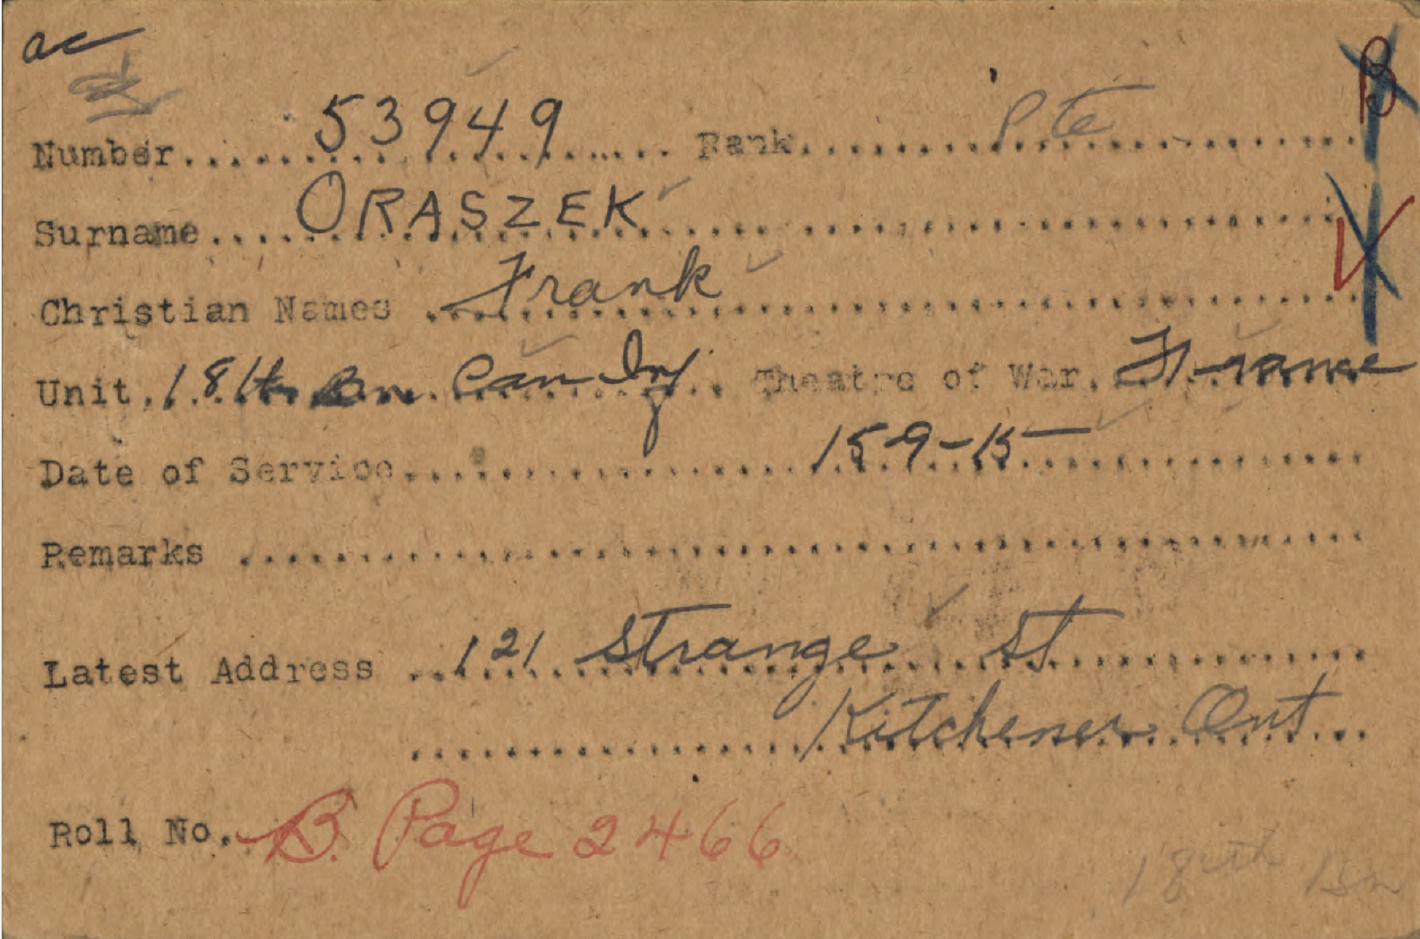 ac
B
Number.................. Rank..................
53949 Pte
Surname.... ORASZEK
Christian Names .. Frank
Unit. 18th Bn Can Inf. Theatre of War. France
Date of Service.......... 15-9-15
Remarks ..........
Latest Address .. 121 Strange St
Kitchener Ont
Roll No. B. Page 2466
18th Bn